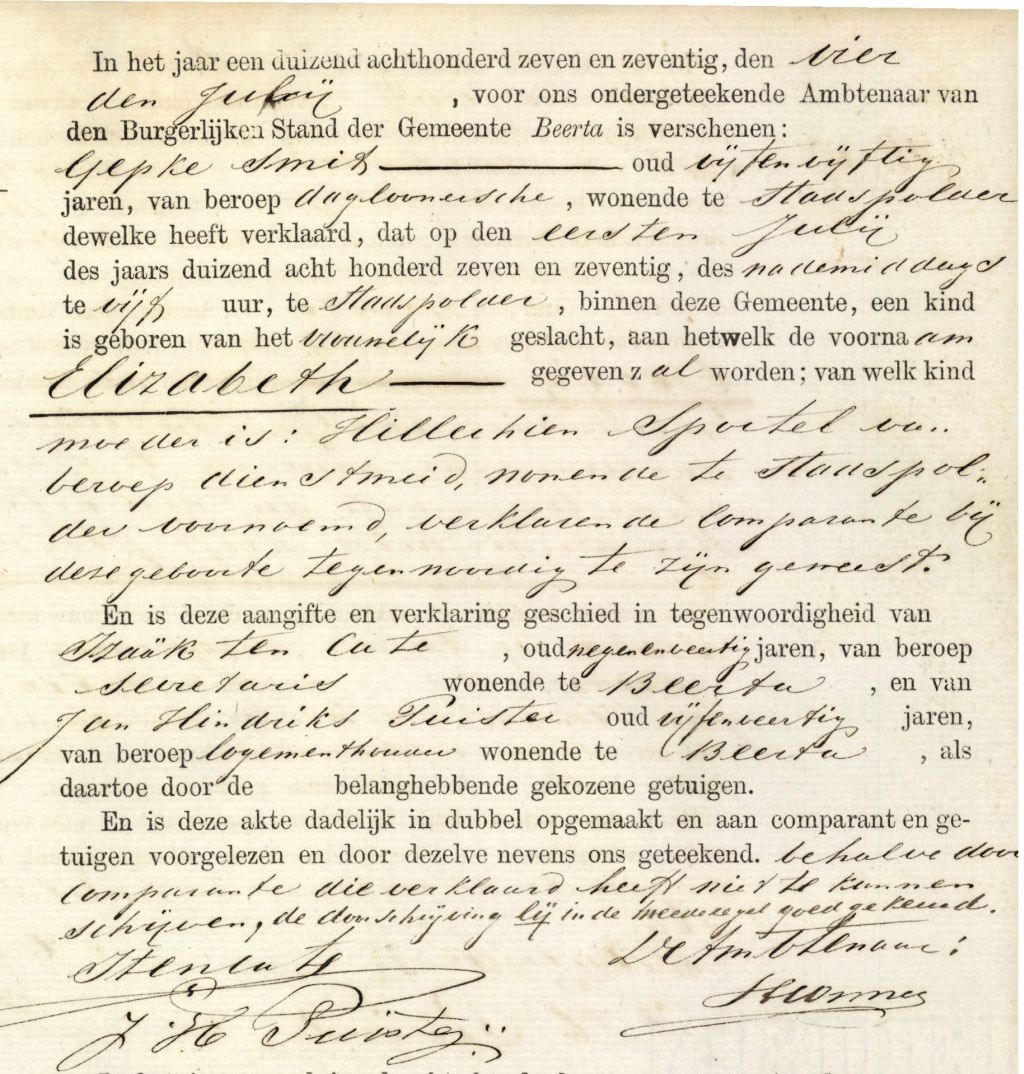 In het jaar een duizend achthonderd zeven en zeventig, den vier
den Julij , voor ons ondergeteekende Ambtenaar van
den Burgerlijken Stand der Gemeente Beerta is verschenen:
Gepke Smit oud vijfenvijftig
jaren, van beroep dagloonersche, wonende te Stadspolder
dewelke heeft verklaard, dat op den eersten Julij
des jaars duizend acht honderd zeven en zeventig, des nademiddags
te vijf uur, te Stadspolder, binnen deze Gemeente, een kind
is geboren van het vrouwelijk geslacht, aan hetwelk de voornaam
Elizabeth gegeven zal worden; van welk kind
moeder is: Hillechien Sportel van
beroep dienstmeid, wonende te Stadspol-
der voornoemd, verklarende Comparante bij
deze geboorte tegenwoordig te zijn geweest.
En is deze aangifte en verklaring geschied in tegenwoordigheid van
Izaäk ten Cate , oud negenenveertig jaren, van beroep
Secretaris wonende te Beerta , en van
Jan Hindriks Puister oud vijfenveertig jaren,
van beroep logementhouder wonende te Beerta , als
daartoe door de belanghebbende gekozene getuigen.
En is deze akte dadelijk in dubbel opgemaakt en aan comparant en ge-
tuigen voorgelezen en door dezelve nevens ons geteekend. behalve door
Comparante die verklaard heeft niet te kunnen
schrijven, de doorschrijving lij in de tweede regel goedgekeurd.
ItenCate De Ambtenaar:
J. H. Puister